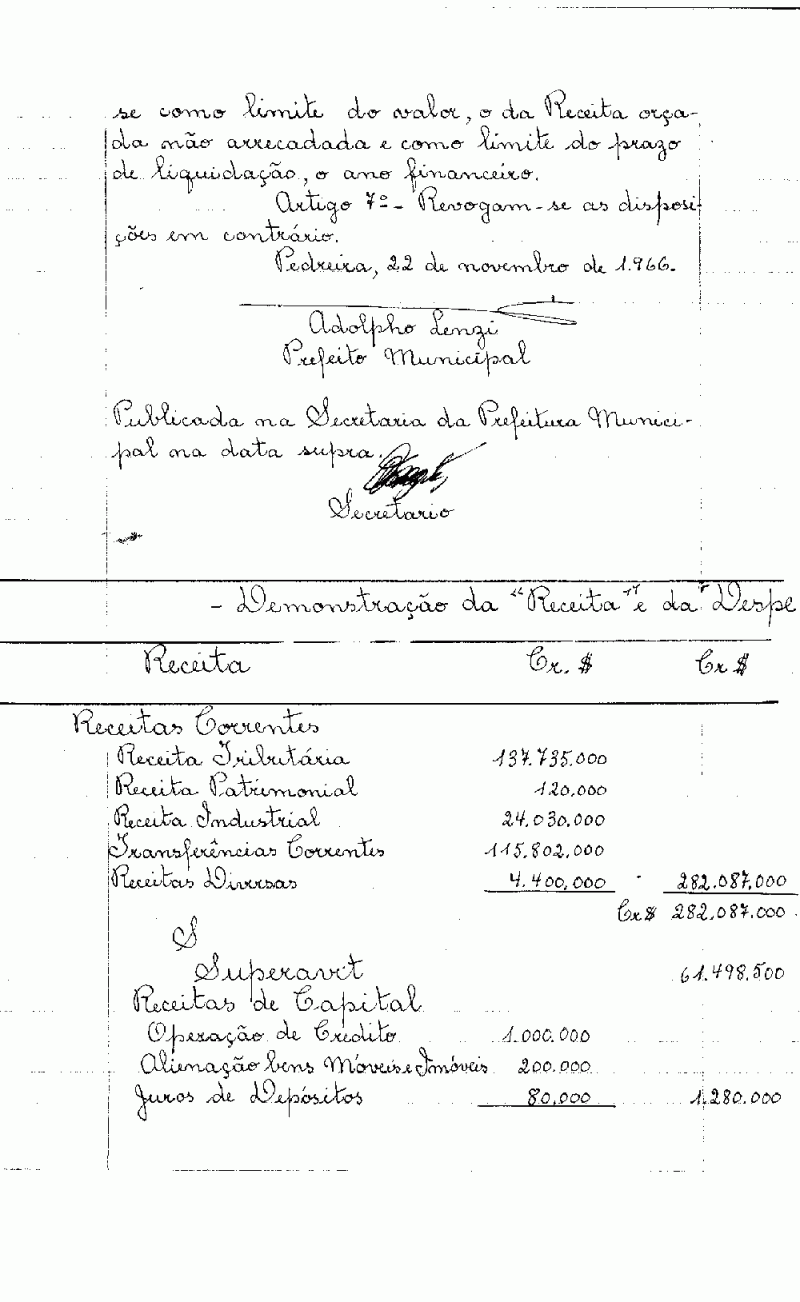 se como limite do valor, o da Receita orça-
da não arrecadada e como limite do prazo
de liquidação, o ano financeiro.
Artigo 7º - Revogam-se as disposi
ções em contrário.
Pedreira, 22 de novembro de 1.966.
Adolpho Lenzi
Prefeito Municipal
Publicada na Secretaria da Prefeitura Munici-
pal na data supra.
Secretario
- Demonstração da "Receita" e da "Despe
Receita Cr. $ Cr $
Receitas Correntes
Receita Tributária 137.735.000
Receita Patrimonial 120.000
Receita Industrial 24.030.000
Transferências Correntes 115.802.000
Receitas Diversas 4.400.000 282.087.000
Cr $ 282.087.000
S
Superavit 61.498.500
Receitas de Capital
Operação de Credito 1.000.000
Alienação bens Móveis e Imóveis 200.000
Juros de Depósitos 80.000 1.280.000